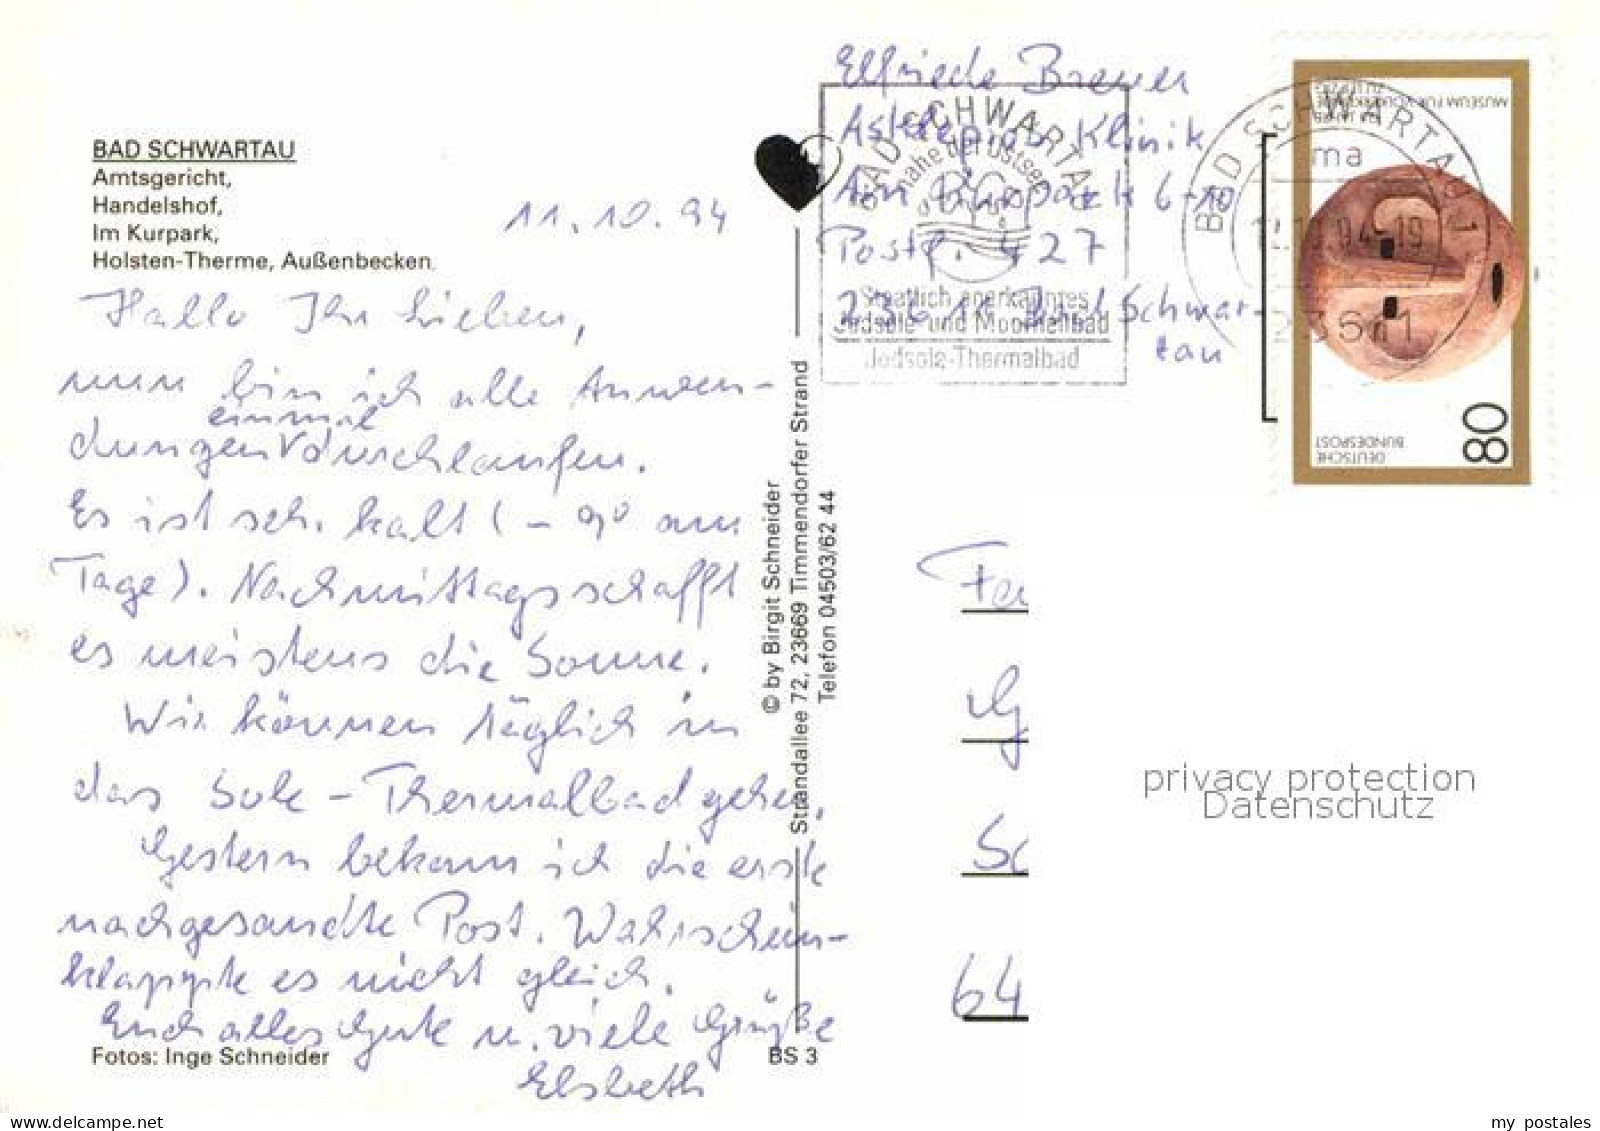 BAD SCHWARTAU
Amtsgericht,
Handelshof,
Im Kurpark,
Holsten-Therme, Außenbecken
11.10.94
Hallo Ihr Lieben,
nun bin ich alle Anwen-
einmal
dungen V durchlaufen.
Es ist seh. kalt ( - 9° am
Tage). Nachmittags schafft
es meistens die Sonne.
Wir können täglich in
das Sole - Thermalbad gehen.
Gestern bekam ich die erste
nachgesandte Post. Wahrschein-
klappte es nicht gleich.
Euch alles Gute u. viele Grüße
Elsbeth
Fotos: Inge Schneider
BS 3
© by Birgit Schneider
Strandallee 72, 23669 Timmendorfer Strand
Telefon 04503/62 44
Elfriede Brewer
Asklepios Klinik
Am Kurpark 6-10
Postf. 427
23611 Bad Schwar-
tau
BAD SCHWARTAU
nahe der Ostsee
Staatlich anerkanntes
Jodsole- und Moorheilbad
Jodsole-Thermalbad
BAD SCHWARTAU 1
ma
11.10.94-19
23611
MUSEUM FÜR VÖLKERKUNDE
LEIPZIG
80
DEUTSCHE
BUNDESPOST
Fa
G
Sc
64
privacy protection
Datenschutz
my postales